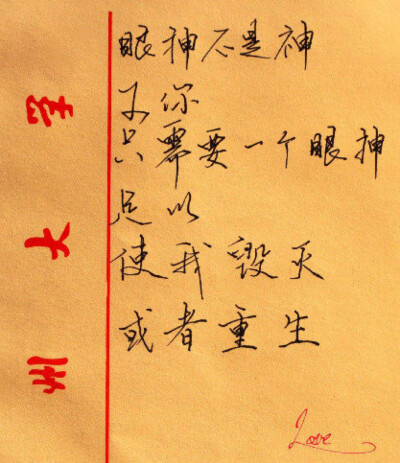 眼神不是神
你
只需要一个眼神
足以
使我毁灭
或者重生
Love
州大学